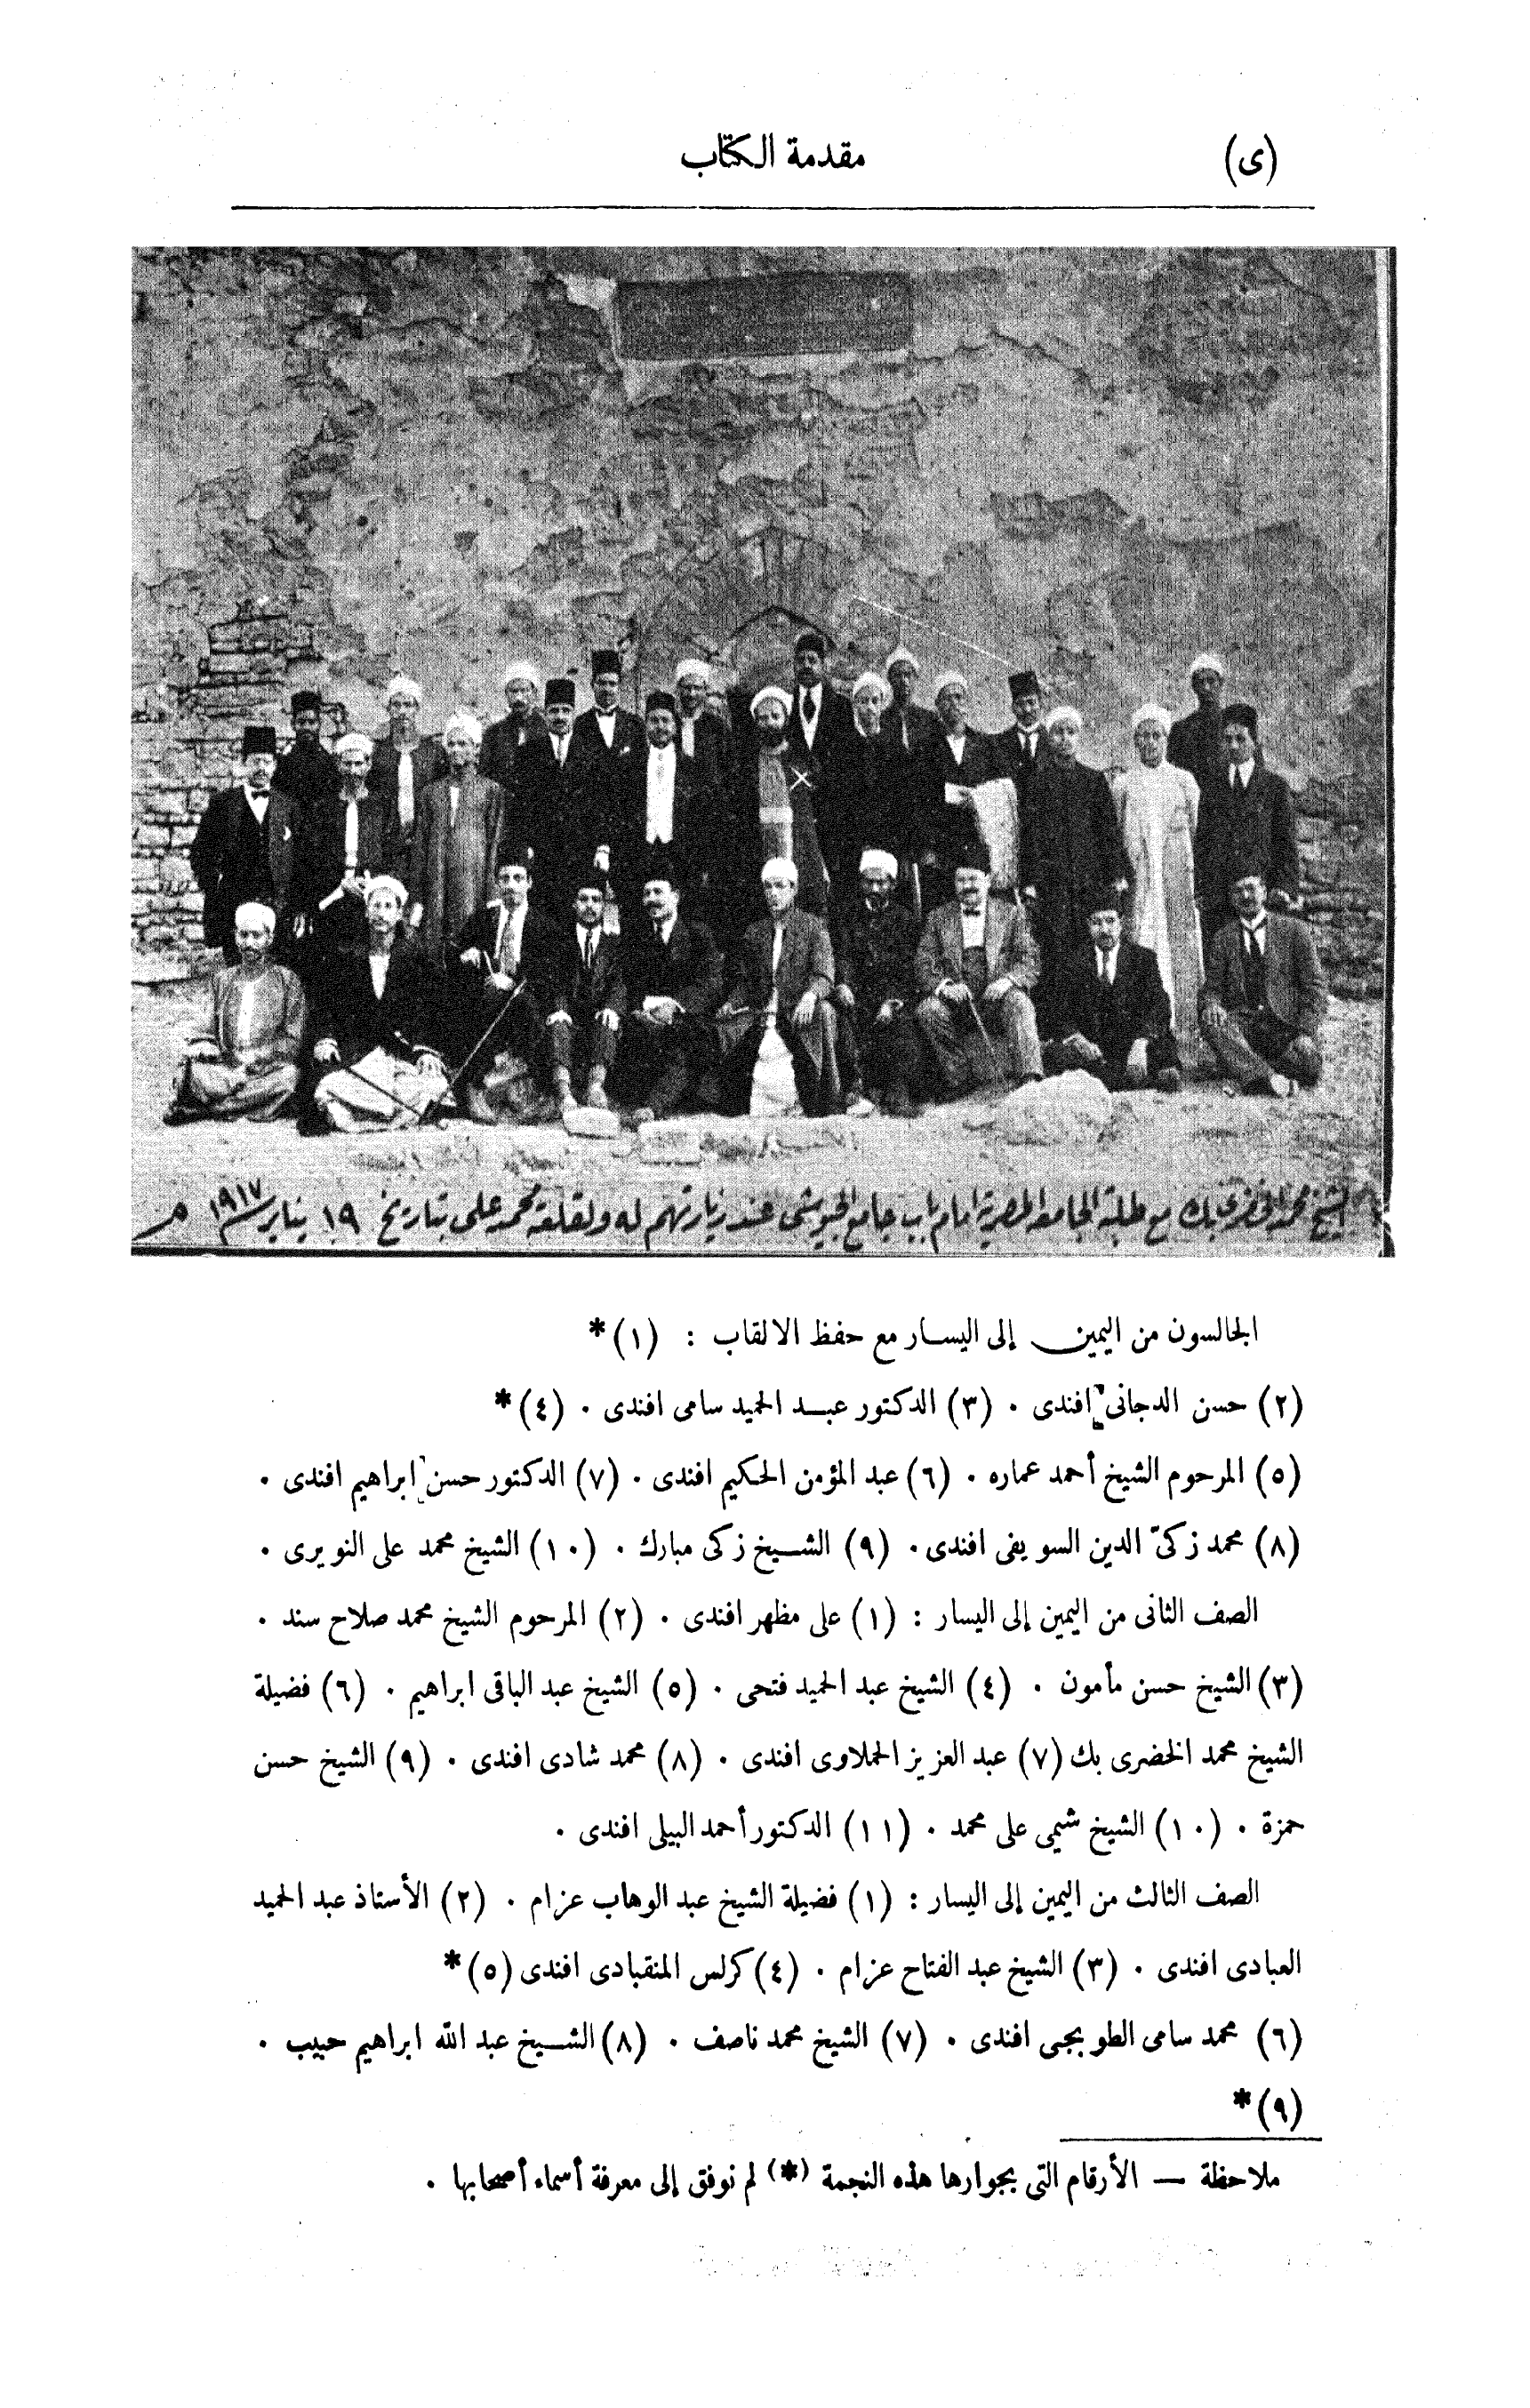 (ى)
مقدمة الكتاب
الشيخ محمد الخضرى بك مع طلبة الجامعة المصرية امام باب جامع الجيوشى عند زيارتهم له ولقلعة محمد على بتاريخ ١٩ يناير سنة ١٩١٧ م
الجالسون من اليمين إلى اليسار مع حفظ الالقاب : (١) *
(٢) حسن الدجانى افندى . (٣) الدكتور عبد الحميد سامى افندى . (٤) *
(٥) المرحوم الشيخ أحمد عماره . (٦) عبد المؤمن الحكيم افندى . (٧) الدكتور حسن ابراهيم افندى .
(٨) محمد زكىّ الدين السويفى افندى . (٩) الشيخ زكى مبارك . (١٠) الشيخ محمد على النويرى .
الصف الثانى من اليمين إلى اليسار : (١) على مظهر افندى . (٢) المرحوم الشيخ محمد صلاح سند .
(٣) الشيخ حسن مأمون . (٤) الشيخ عبد الحميد فتحى . (٥) الشيخ عبد الباقى ابراهيم . (٦) فضيلة
الشيخ محمد الخضرى بك (٧) عبد العزيز الحملاوى افندى . (٨) محمد شادى افندى . (٩) الشيخ حسن
حمزة . (١٠) الشيخ شيمى على محمد . (١١) الدكتور أحمد البيلى افندى .
الصف الثالث من اليمين إلى اليسار : (١) فضيلة الشيخ عبد الوهاب عزام . (٢) الأستاذ عبد الحميد
العبادى افندى . (٣) الشيخ عبد الفتاح عزام . (٤) كرلس المنقبادى افندى (٥) *
(٦) محمد سامى الطوبجى افندى . (٧) الشيخ محمد ناصف . (٨) الشيخ عبد الله ابراهيم حبيب .
(٩) *
ملاحظة — الأرقام التى بجوارها هذه النجمة (*) لم نوفق إلى معرفة أسماء أصحابها .